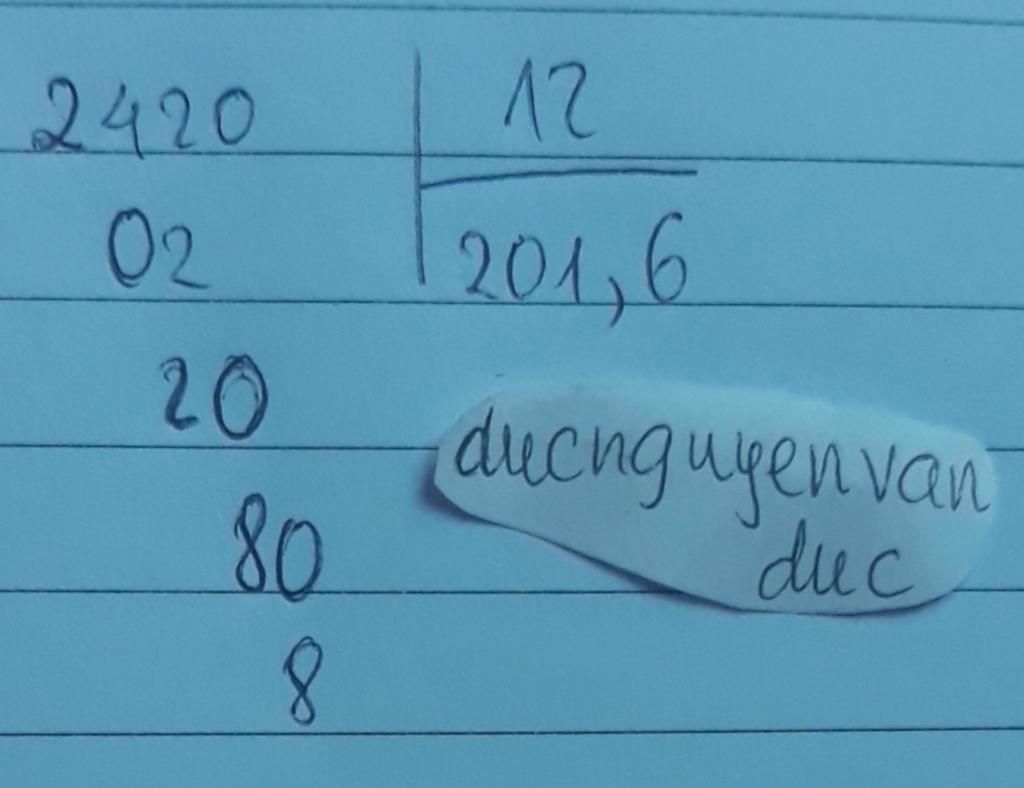 2420 12
02 201,6
20
80
8
ducnguyenvan
duc